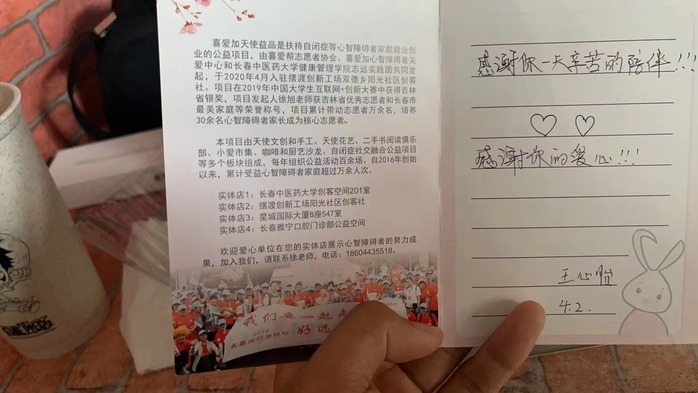 喜爱加天使益品是扶持自闭症等心智障碍者家庭就业创
业的公益项目，由喜爱帮志愿者协会、喜爱加心智障碍者关
爱中心和长春中医药大学健康管理学院志远实践团共同发
起，于2020年4月入驻摆渡创新工场双德乡阳光社区创客
社。项目在2019年中国大学生互联网+创新大赛中获得吉林
省银奖，项目发起人徐旭老师获吉林省优秀志愿者和长春市
最美家庭等荣誉称号，项目累计带动志愿者万余名，培养
30余名心智障碍者家长成为核心志愿者。
本项目由天使文创和手工、天使花艺、二手书阅读俱乐
部、小爱市集、咖啡和厨艺沙龙、自闭症社交融合公益项目
等多个板块组成，每年组织公益活动百余场。自2016年创始
以来，累计受益心智障碍者家庭超过万余人次。
实体店1：长春中医药大学创客空间201室
实体店2：摆渡创新工场阳光社区创客社
实体店3：星城国际大厦B座547室
实体店4：长春雅宁口腔门诊部公益空间
欢迎爱心单位在您的实体店展示心智障碍者的努力成
果，加入我们，请联系徐老师，电话：18604435518.
我们要一起走
好选
感谢你一天辛苦的陪伴!!!
感谢你的爱心!!!
王心怡
4.2.